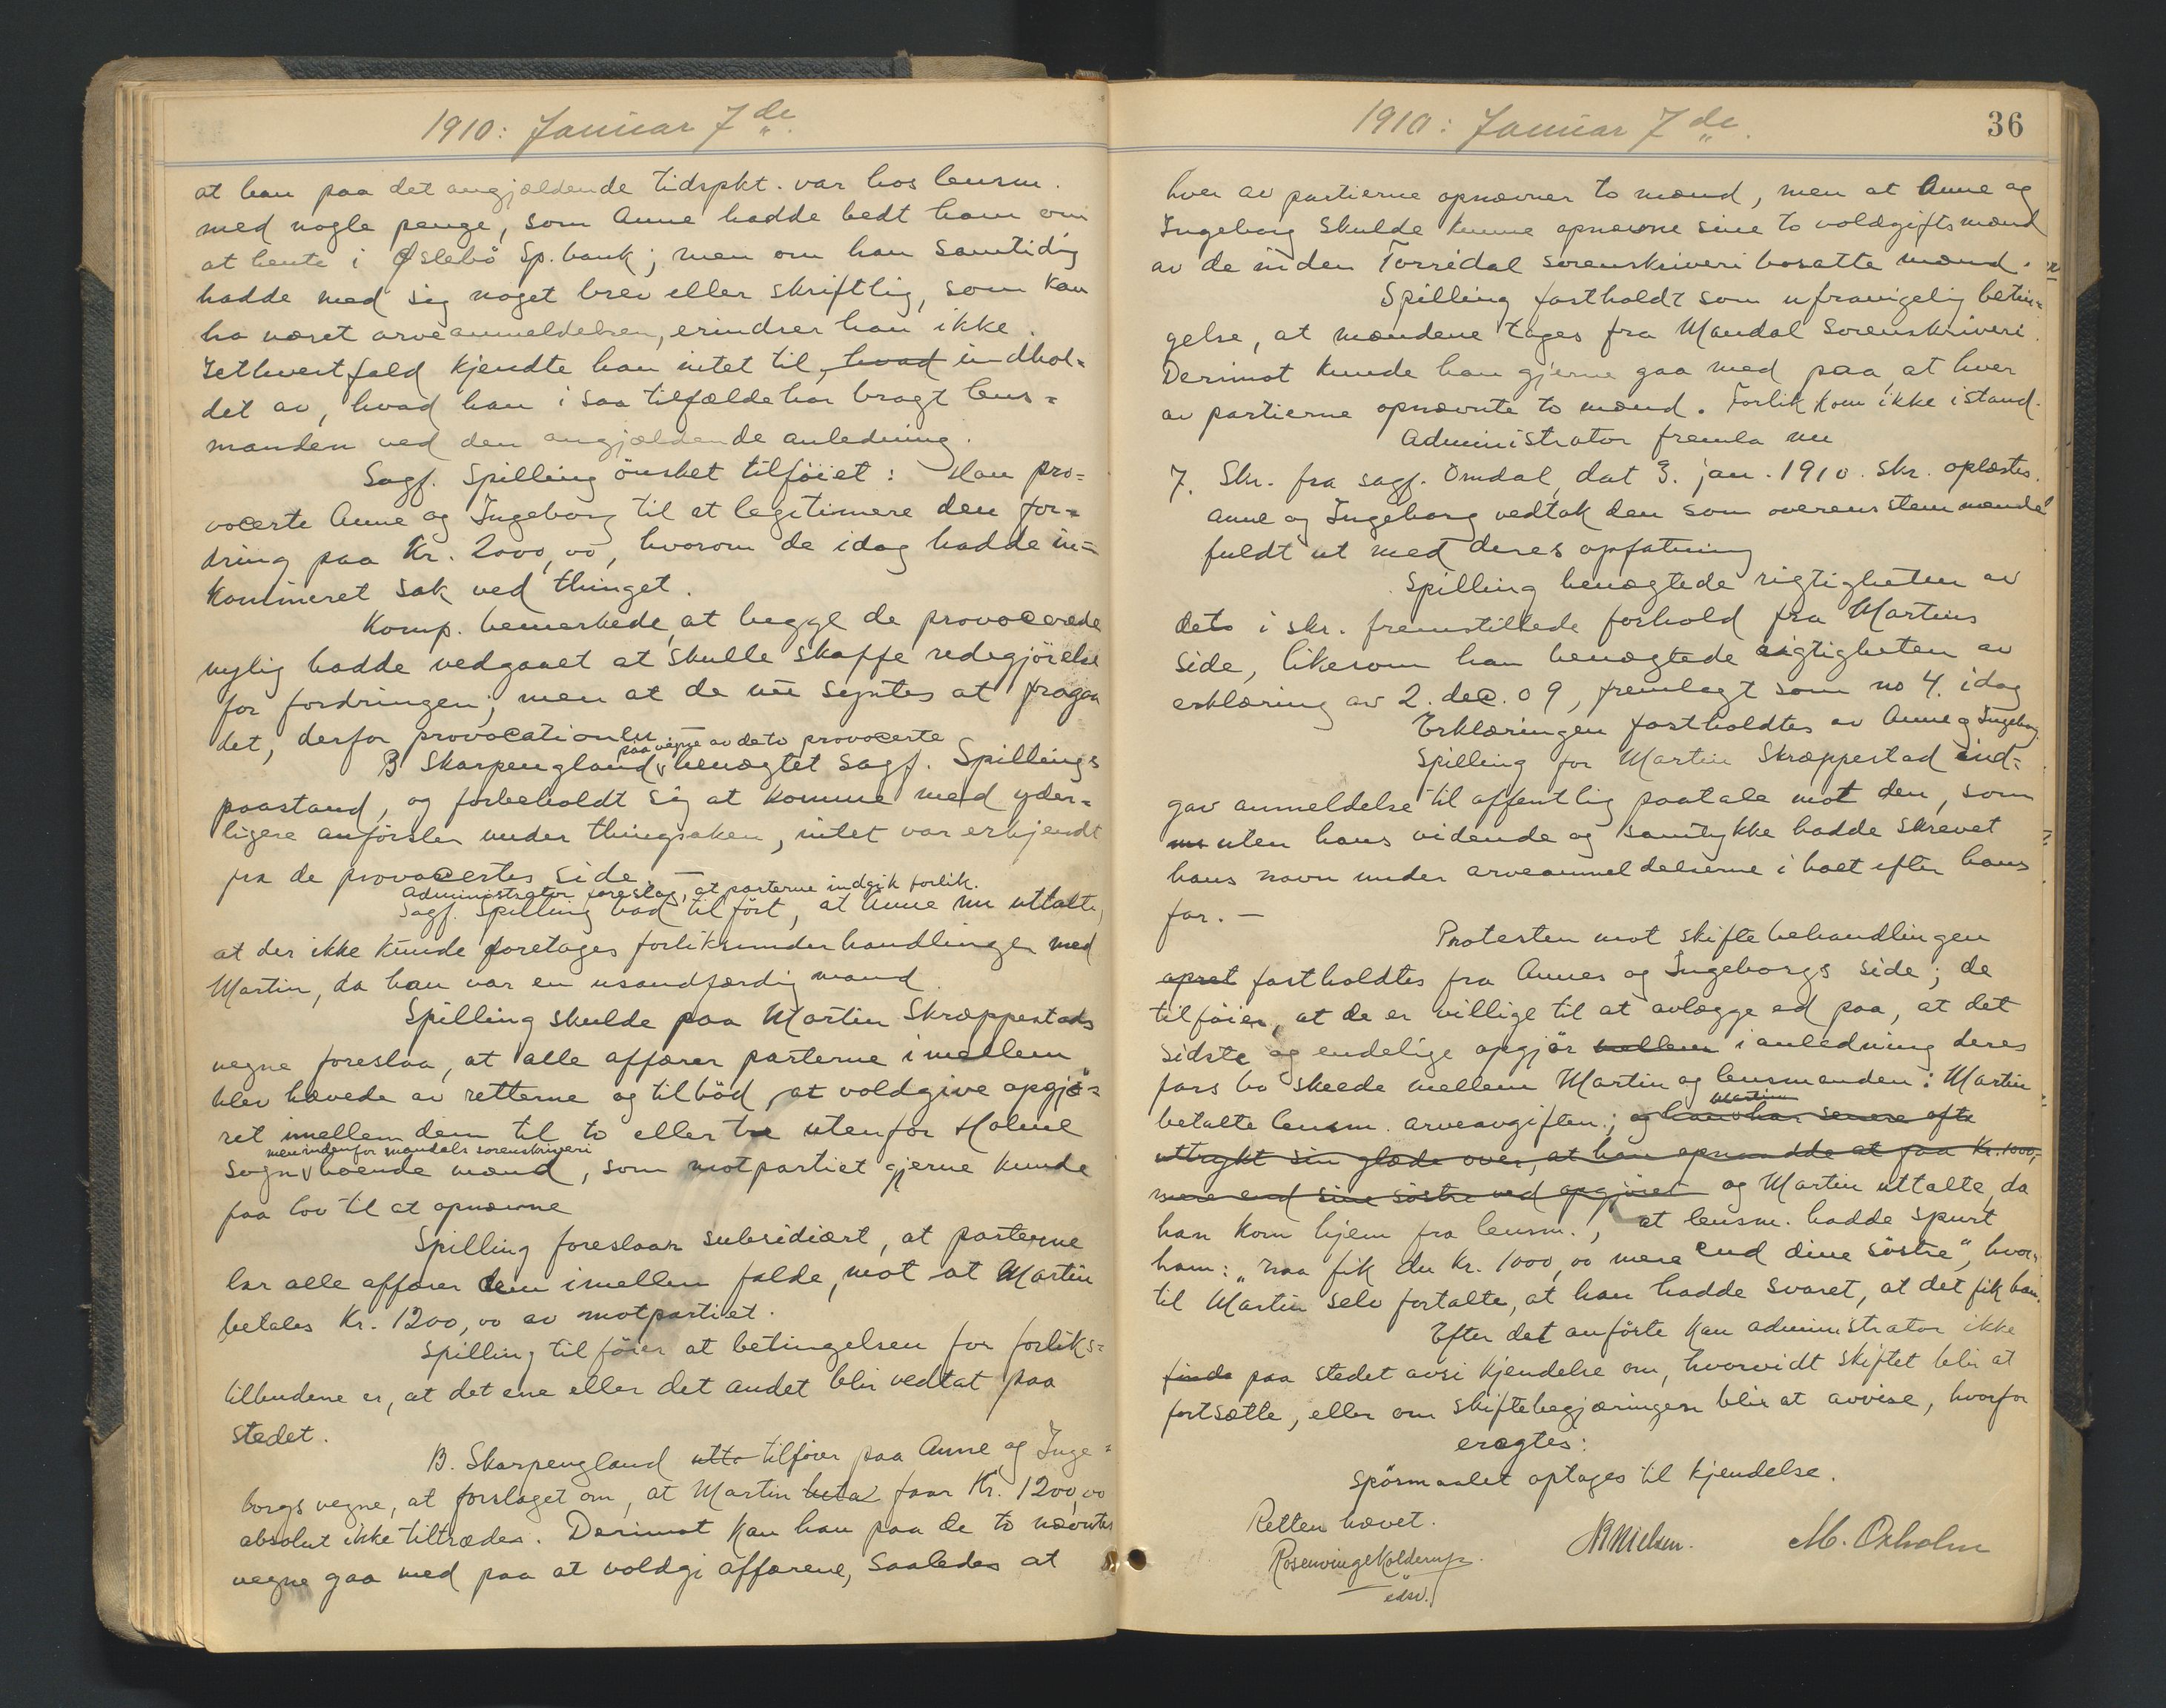 1910: Januar 7de
at han paa det angjældende tidspkt. var hos lensm.
med nogle penge, som Anne hadde bedt ham om
at hente i Øslebö Sp.bank; men om han samtidig
hadde med sig noget brev eller skriftlig, som kan
ha været arveanmeldelsen, erindrer han ikke.
Iethvertfald kjendte han intet til, hvad indhol=
det av, hvad han i saa tilfælde har bragt lens=
manden ved den angjældende anledning.
Sagf. Spilling önsket tilföiet: Han pro=
vocerte Anne og Ingeborg til at legitimere den for=
dring paa Kr. 2000,00, hvorom de idag hadde in=
kamineret sak ved thinget.
Komp. bemerkede, at begge de provocerede
nylig hadde vedgaaet at skulle skaffe redegjörelse
for fordringen; men at de nu syntes at fragaa
det, derfor provocationen. —
paa vegne av de to provocerte
B. Skarpengland benægtet sagf. Spillings
paastand, og forbeholdt sig at komme med yder=
ligere anförsler under thingsaken, intet var erkjendt
fra de provocertes side. —
Administrator foreslog, at parterne indgik forlik.
Sagf. Spilling bad tilfört, at Anne nu uttalte,
at der ikke kunde foretages forliksunderhandlinger med
Martin, da han var en usandfærdig mand.
Spilling skulde paa Martin Skræppestads
vegne foreslaa, at alle affærer parterne imellem
blev hævede av retterne og tilböd, at voldgive opgjö=
ret imellem dem til to eller tre utenfor Holme
men indenfor mandals sorenskriveri
sogn boende mænd, som motpartiet gjerne kunde
faa lov til at opnævne
Spilling foreslaar subsidiært, at parterne
lar alle affærer dem imellem falde, mot at Martin
betales Kr. 1200,00 av motpartiet.
Spilling tilföier at betingelsen for forliks=
tilbudene er, at det ene eller det andet blir vedtat paa
stedet.
B. Skarpengland utta tilföier paa Anne og Inge=
borgs vegne, at forslaget om, at Martin beta faar Kr. 1200,00
absolut ikke tiltrædes. Derimot kan han paa de to nævntes
vegne gaa med paa at voldgi affærene, saaledes at
1910: Januar 7de.
36
hver av partierne opnævner to mænd, men at Anne og
Ingeborg skulde kunne opnævne sine to voldgiftsmænd
av de inden Torridal sorenskriveri bosatte mænd.
Spilling fastholdt som ufravigelig betin=
gelse, at mændene tages fra Mandal sorenskriveri.
Derimot kunde han gjerne gaa med paa, at hver
av partierne opnævnte to mænd. Forlik kom ikke istand.
Administrator fremla nu
7. Skr. fra sagf. Omdal, dat 3. jan. 1910. Skr. oplæstes.
Anne og Ingeborg vedtok den som overensstemmende
fuldt ut med deres opfatning
Spilling benægtede rigtigheten av
dets i skr. fremstillede forhold fra Martins
side, likesom han benægtede rigtigheten av
erklæring av 2. dec. 09, fremlagt som no 4. idag
Erklæringen fastholdtes av Anne og Ingeborg.
Spilling for Martin Skræppestad ind=
gav anmeldelse til offentlig paatale mot den, som
nu uten hans vidende og samtykke hadde skrevet
hans navn under arveanmeldelserne i boet efter hans
far. —
Protesten mot skiftebehandlingen
opret fastholdtes fra Annes og Ingeborgs side; de
tilföier, at de er villige til at avlægge ed paa, at det
sidste og endelige opgjör mellem i anledning deres
fars bo skeede mellem Martin og lensmanden: Martin
Martin
betalte lensm. arveavgiften.; og han har senere ofte
uttrykt sin glæde over, at han opnaadde at faa Kr. 1000,
mere end sine söstre ved opgjöret og Martin uttalte, da
han kom hjem fra lensm., at lensm. hadde spurt
ham: "naa fik du Kr. 1000,00 mere end dine söstre", hvor=
til Martin selv fortalte, at han hadde svaret, at det fik han.
Efter det anförte kan administrator ikke
finde paa stedet avsi kjendelse om, hvorvidt skiftet blir at
fortsætte, eller om skiftebegjæringen blir at avvise, hvorfor
eragtes:
Spörsmaalet optages til kjendelse.
Retten hævet.
Rosenvinge Kolderup.
edsv.
NNielsen.
M. Oxholm